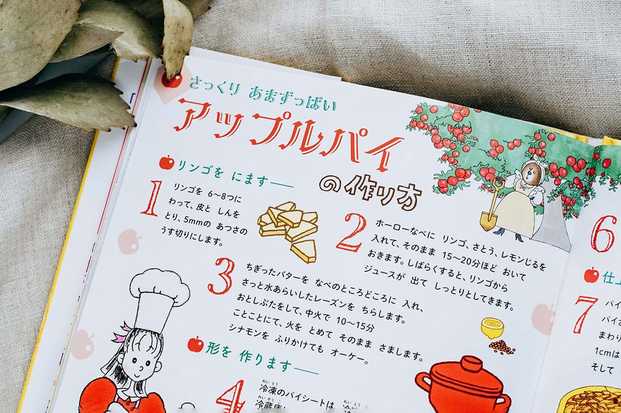 さっくり あまずっぱい
アップルパイ
の作り方
リンゴを にます
1
リンゴを 6〜8つに
わって、皮と しんを
とり、5mmの あつさの
うす切りにします。
2
ホーローなべに リンゴ、さとう、レモンじるを
入れて、そのまま 15〜20分ほど おいて
おきます。しばらくすると、リンゴから
ジュースが 出て しっとりとしてきます。
3
ちぎったバターを なべのところどころに 入れ、
さっと水あらいしたレーズンを ちらします。
おとしぶたをして、中火で 10〜15分
ことことにて、火を とめて そのまま さまします。
シナモンを ふりかけても オーケー。
形を 作ります
4
冷凍のパイシートは
6
仕
7
パイ
パイ
まわり
1cmは
そして